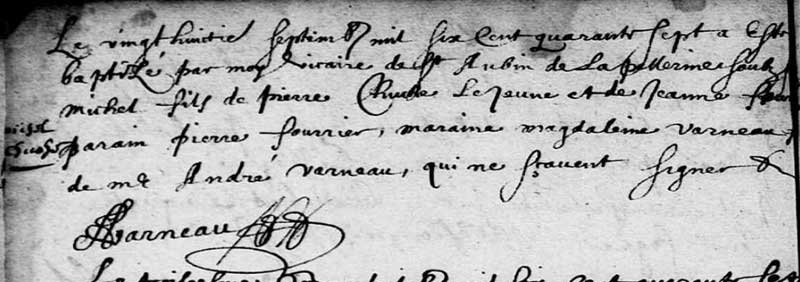 Le vingt huictie septemb mil six cent quarante sept a esté
baptisé par moy vicaire de St Aubin de La pellerine soub
michel fils de pierre Le Jeune et de Jeanne
parain pierre fourrier, maraine magdaleine varneau
de me André varneau, qui ne sçavent signer &
Varneau
quarante sept